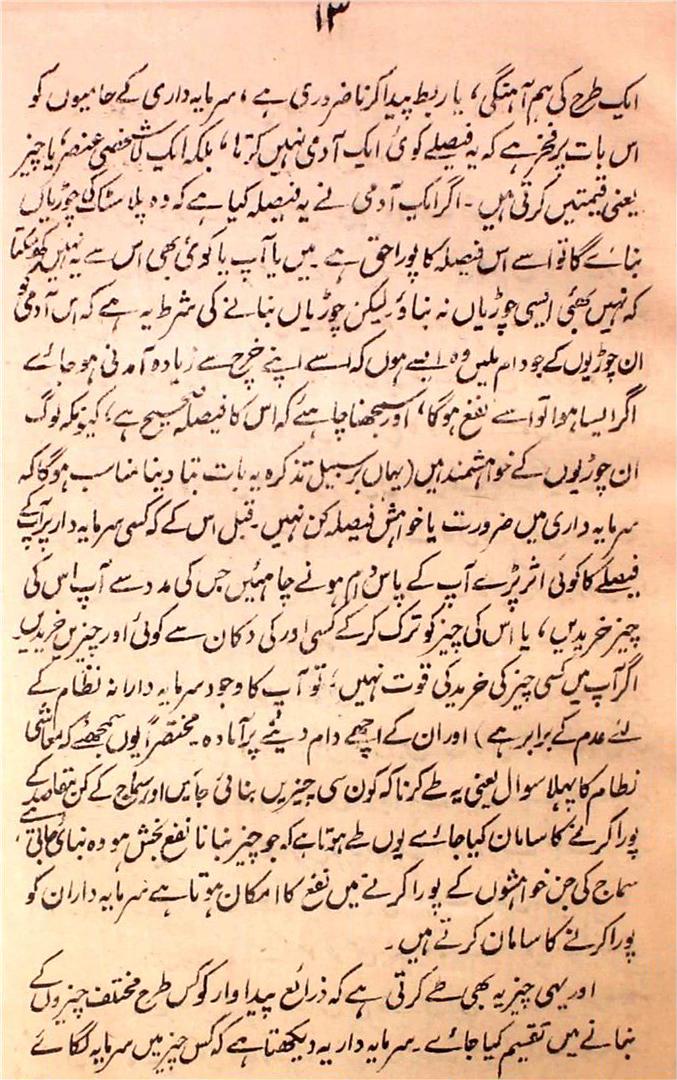 ۱۳
ایک طرح کی ہم آہنگی، یا ربط پیدا کرنا ضروری ہے، سرمایہ داری کے حامیوں کو
اس بات پر فخر ہے کہ یہ فیصلے کوئی ایک آدمی نہیں کرتا، بلکہ ایک لاشخصی عنصر، یا چیز
یعنی قیمتیں کرتی ہیں۔ اگر ایک آدمی نے یہ فیصلہ کیا ہے کہ وہ پلاسٹک کی چوڑیاں
بنائے گا تو اسے اس فیصلہ کا پورا حق ہے۔ میں یا آپ یا کوئی بھی اس سے یہ نہیں کہہ سکتا
کہ نہیں بھئی ایسی چوڑیاں نہ بناؤ۔ لیکن چوڑیاں بنانے کی شرط یہ ہے کہ اس آدمی کو
ان چوڑیوں کے جو دام ملیں وہ ایسے ہوں کہ اسے اپنے خرچ سے زیادہ آمدنی ہو جائے
اگر ایسا ہوا تو اسے نفع ہوگا، اور سمجھنا چاہئے کہ اس کا فیصلہ صحیح ہے، کیونکہ لوگ
ان چوڑیوں کے خواہشمند ہیں (یہاں بر سبیل تذکرہ یہ بات بتا دینا مناسب ہوگا کہ
سرمایہ داری میں ضرورت یا خواہش فیصلہ کن نہیں۔ قبل اس کے کہ کسی سرمایہ دار پر آپ کے
فیصلے کا کوئی اثر پڑے آپ کے پاس دام ہونے چاہئیں جس کی مدد سے آپ اس کی
چیز خریدیں، یا اس کی چیز کو ترک کر کے کسی اور کی دکان سے کوئی اور چیزیں خریدیں۔
اگر آپ میں کسی چیز کی خرید کی قوت نہیں، تو آپ کا وجود سرمایہ دارانہ نظام کے
لئے عدم کے برابر ہے) اور ان کے اچھے دام دینے پر آمادہ۔ مختصراً یوں سمجھئے کہ معاشی
نظام کا پہلا سوال یعنی یہ طے کرنا کہ کون سی چیزیں بنائی جائیں اور سماج کے کن مقاصد کے
پورا کرنے کا سامان کیا جائے یوں طے ہوتا ہے کہ جو چیز بنانا نفع بخش ہو وہ بنائی جاتی ہے،
سماج کی جن خواہشوں کے پورا کرنے میں نفع کا امکان ہوتا ہے سرمایہ دار ان کو
پورا کرنے کا سامان کرتے ہیں۔
اور یہی چیز یہ بھی طے کرتی ہے کہ ذرائع پیداوار کو کس طرح مختلف چیزوں کے
بنانے میں تقسیم کیا جائے۔ سرمایہ دار یہ دیکھتا ہے کہ کس چیز میں سرمایہ لگائے